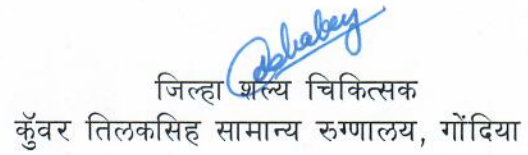 जिल्हा शल्य चिकित्सक
कुॅंवर तिलकसिह सामान्य रुग्णालय, गोंदिया